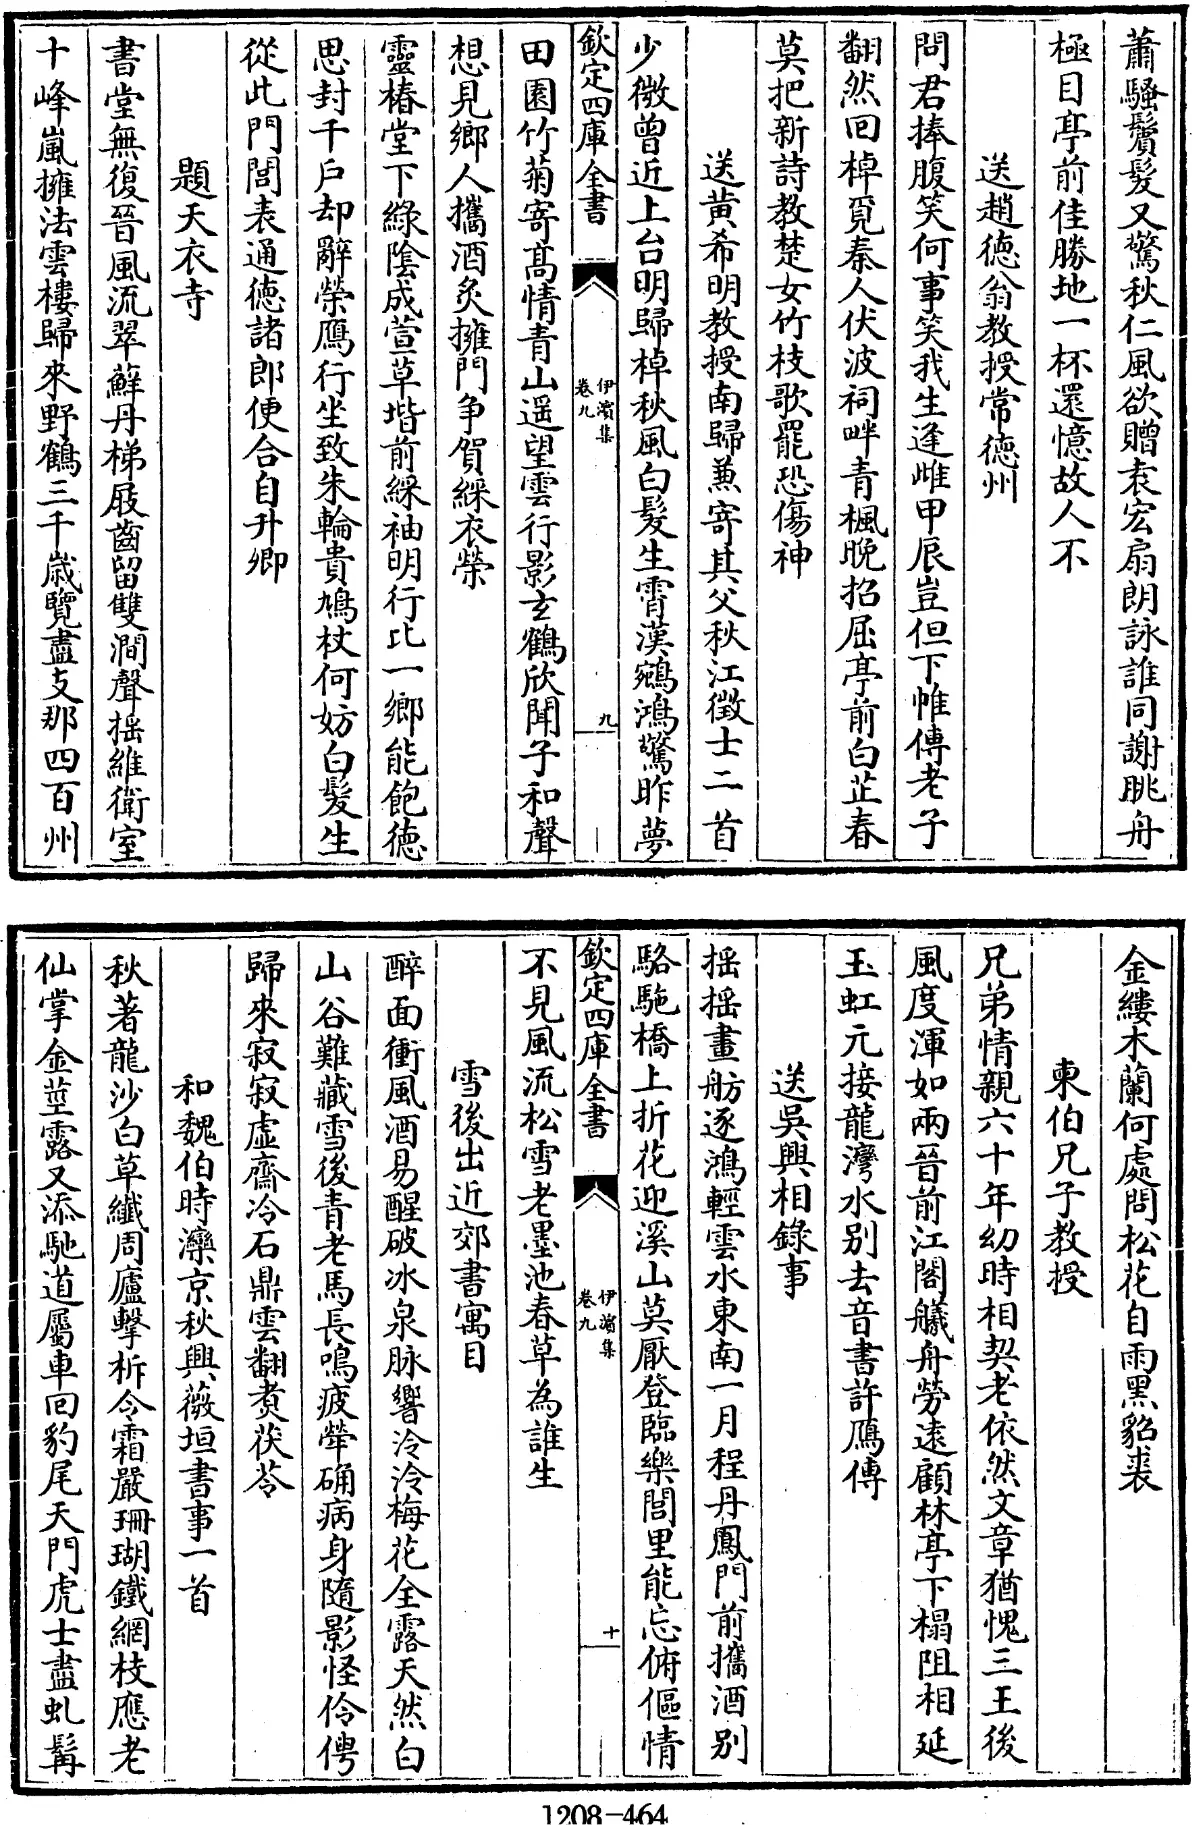 蕭騷鬢髮又驚秋仁風欲贈袁宏扇朗詠誰同謝朓舟
極目亭前佳勝地一杯還憶故人不
送趙德翁教授常德州
問君捧腹笑何事笑我生逢雌甲辰豈但下帷傳老子
翻然回棹覓秦人伏波祠畔青楓晚招屈亭前白芷春
莫把新詩教楚女竹枝歌罷恐傷神
送黄希明教授南歸兼寄其父秋江徵士二首
少微曾近上台明歸棹秋風白髮生霄漢鵷鴻驚昨夢
欽定四庫全書
伊濱集
卷九
九
田園竹菊寄髙情青山遥望雲行影玄鶴欣聞子和聲
想見鄉人攜酒炙擁門争賀綵衣榮
靈椿堂下綠陰成萱草堦前綵袖明行比一鄉能飽德
思封千戶却辭榮鴈行坐致朱輪貴鳩杖何妨白髮生
從此門閭表通德諸郎便合自升卿
題天衣寺
書堂無復晉風流翠蘚丹梯屐齒留雙澗聲揺維衛室
十峰嵐擁法雲樓歸來野鶴三千歲覽盡支那四百州
金縷木蘭何處問松花自雨黑貂裘
柬伯兄子教授
兄弟情親六十年幼時相契老依然文章猶愧三王後
風度渾如兩晉前江閣艤舟勞遠顧林亭下榻阻相延
玉虹元接龍灣水别去音書許鴈傳
送吳興相錄事
揺揺畫舫逐鴻輕雲水東南一月程丹鳳門前攜酒别
駱駞橋上折花迎溪山莫厭登臨樂閭里能忘俯傴情
欽定四庫全書
伊濱集
卷九
十
不見風流松雪老墨池春草為誰生
雪後出近郊書寓目
醉面衝風酒易醒破冰泉脉響泠泠梅花全露天然白
山谷難藏雪後青老馬長鳴疲犖确病身隨影怪伶俜
歸來寂寂虚齋冷石鼎雲翻煑茯苓
和魏伯時灤京秋興薇垣書事一首
秋著龍沙白草纖周廬擊柝令霜嚴珊瑚鐵網枝應老
仙掌金莖露又添馳道屬車回豹尾天門虎士盡虬髯
1208-464